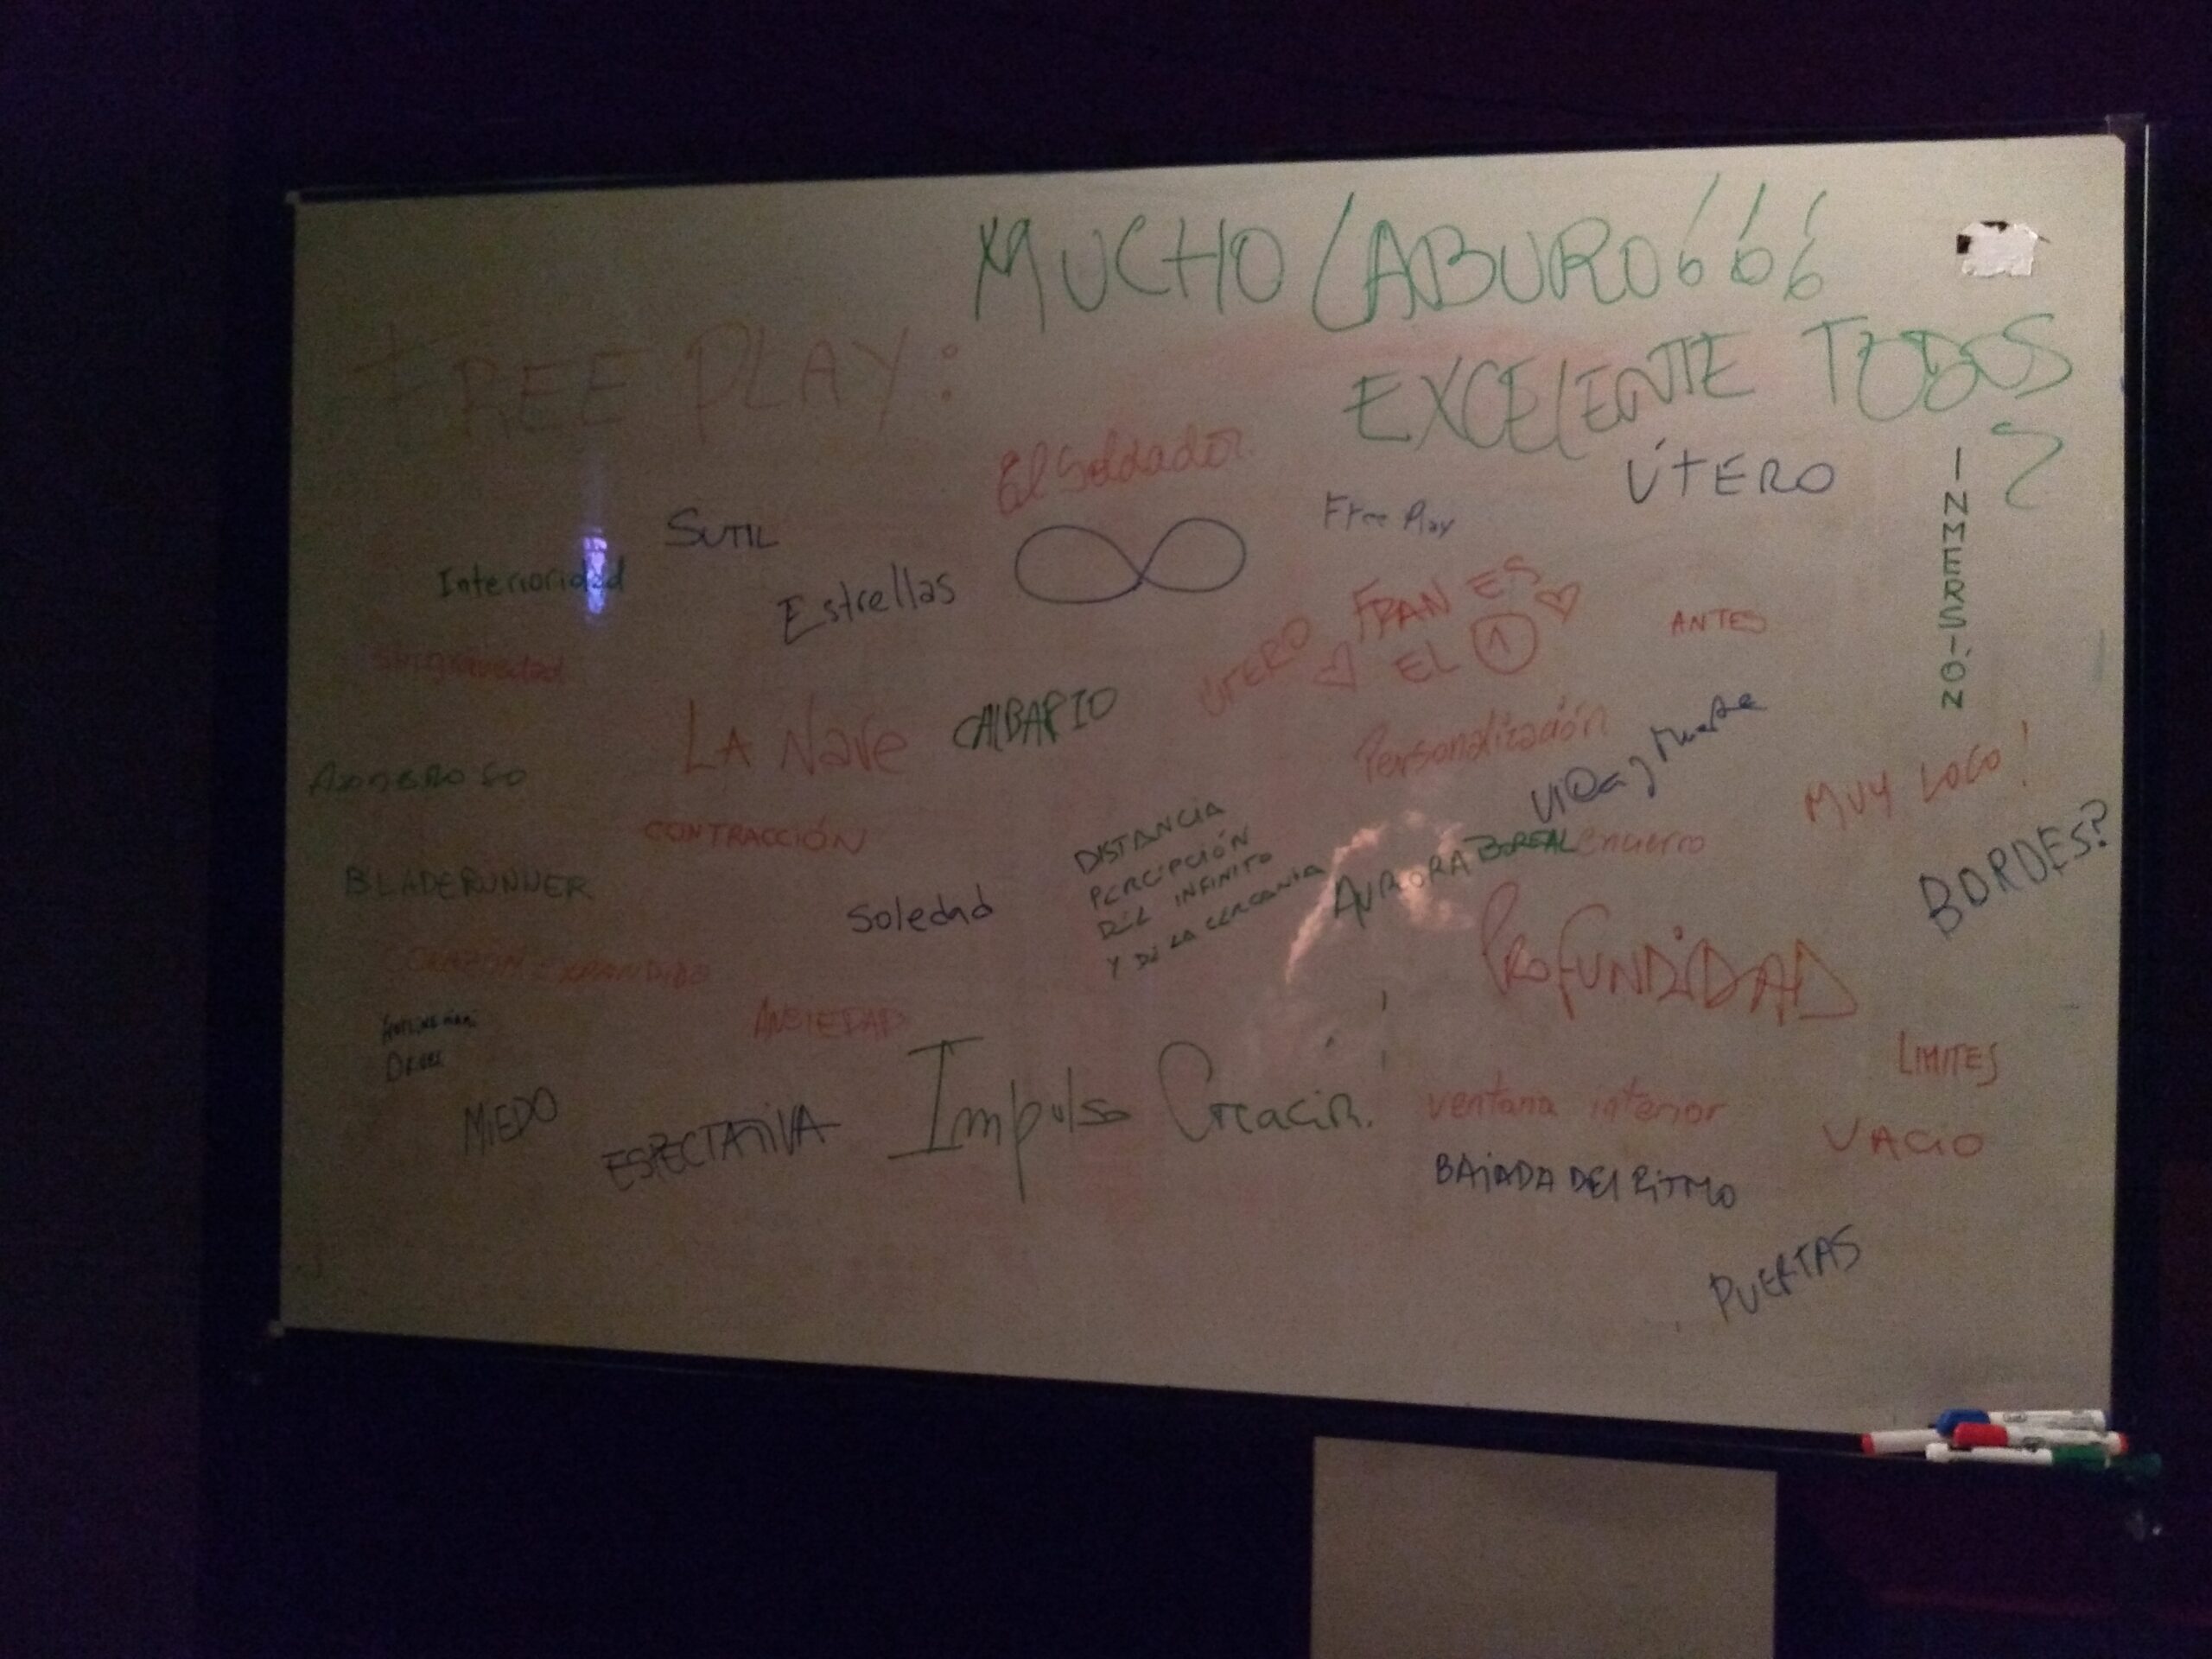 MUCHO LABURO 666
FREE PLAY:
EXCELENTE TODOS
El Soldador
ÚTERO
Free Play
SUTIL
INMERSIÓN
Interioridad
Estrellas
FRAN ES
EL 1
ÚTERO
ANTES
Singravedad
LA Nave
Personalización
Vida y Muerte
MUY LOCO!
CONTRACCIÓN
DISTANCIA
PERCEPCIÓN
DEL INFINITO
Y DE LA CERCANIA
AURORA BOREAL
encierro
BORDES?
BLADERUNNER
Soledad
PROFUNDIDAD
CORAZÓN EXPANDIDO
ANSIEDAD
LIMITES
MIEDO
ESPECTATIVA
Impulso Creación.
ventana interior
VACIO
BAJADA DEL RITMO
PUERTAS